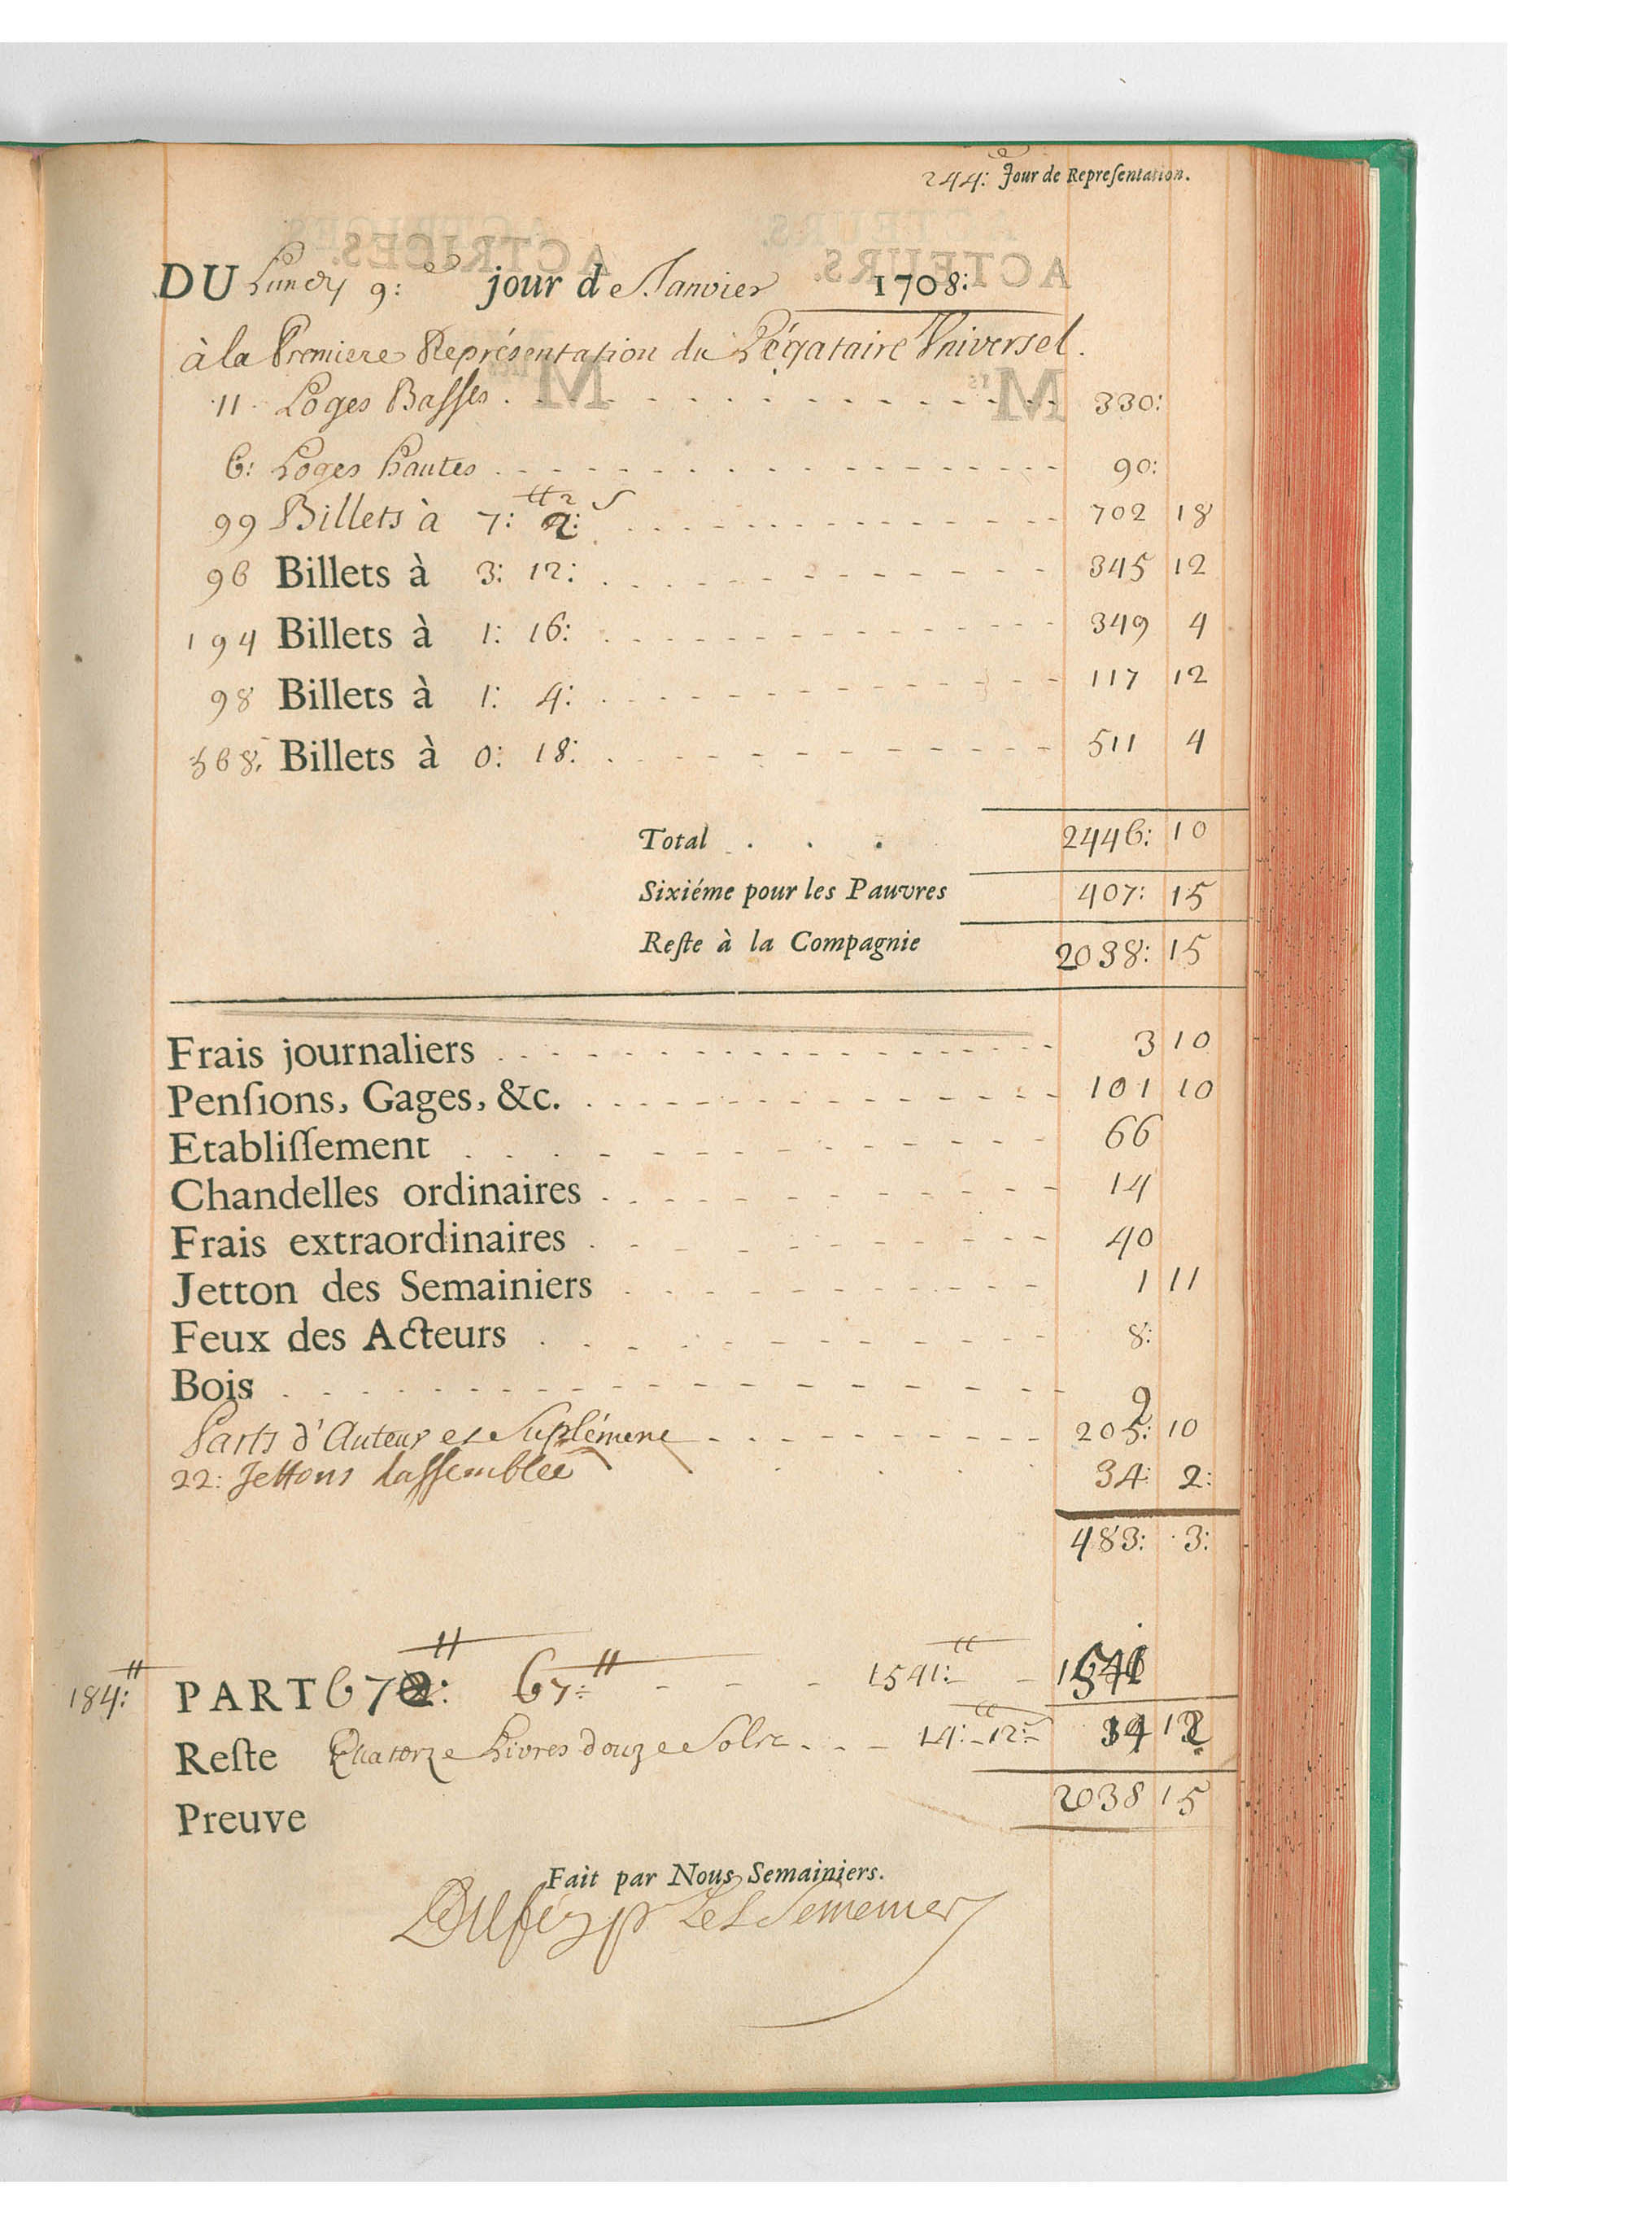 244: e Jour de Representation.
DU Lundy 9: e jour de Janvier 1708:
à la Premiere Représentation du Légataire Universel.
11 Loges Basses 330:
6: Loges hautes 90:
99 Billets à 7: 2: 702 18
96 Billets à 3: 12: 345 12
194 Billets à 1: 16: 349 4
98 Billets à 1: 4: 117 12
568 Billets à 0: 18: 511 4
Total . . . 2446: 10
Sixiéme pour les Pauvres 407: 15
Reste à la Compagnie 2038: 15
Frais journaliers 3 10
Pensions, Gages, &c. 101 10
Etablissement 66
Chandelles ordinaires 14
Frais extraordinaires 40
Jetton des Semainiers 1 11
Feux des Acteurs 8:
Bois 9
Parts d'Auteur et Suplément 205: 10
22: Jettons dassemblée 34: 2:
483: 3:
184: PART 67 67: 1541: 1541
Reste Quatorze Livres douze Solz 14: 12: 14 12
Preuve 2038 15
Fait par Nous Semainiers.